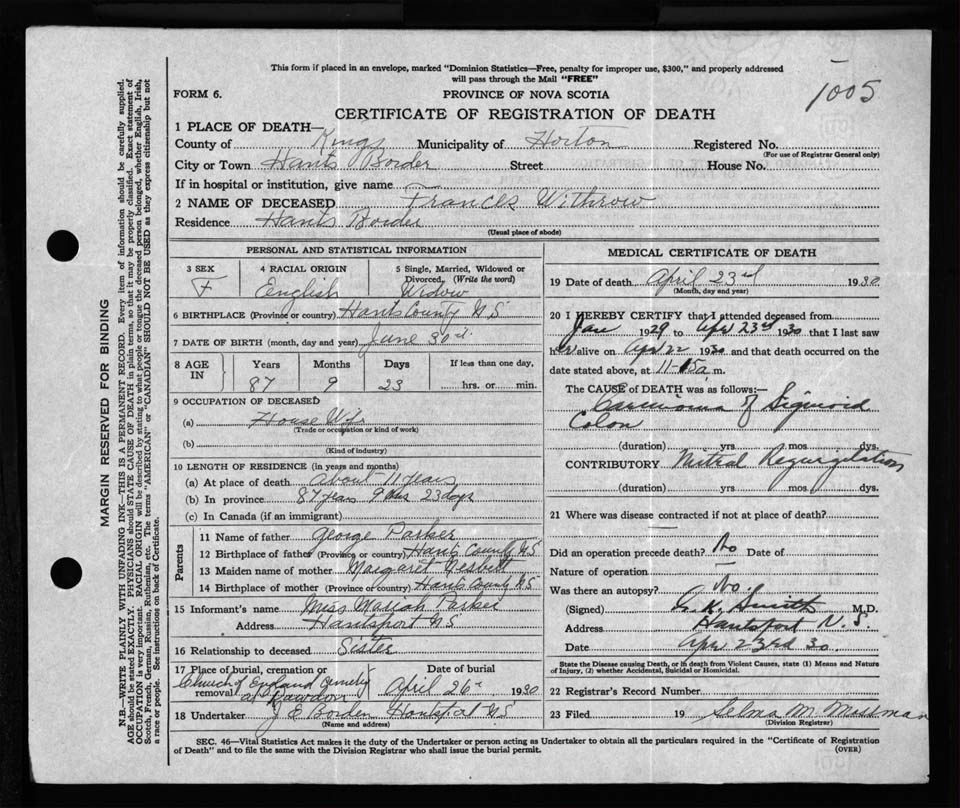 This form if placed in an envelope, marked "Dominion Statistics—Free, penalty for improper use, $300," and properly addressed
will pass through the Mail "FREE"
1005
FORM 6. PROVINCE OF NOVA SCOTIA
CERTIFICATE OF REGISTRATION OF DEATH
1 PLACE OF DEATH—
County of Kings Municipality of Horton Registered No.
(For use of Registrar General only)
City or Town Hants Border Street House No.
If in hospital or institution, give name
2 NAME OF DECEASED Frances Withrow
Residence Hants Border
(Usual place of abode)
PERSONAL AND STATISTICAL INFORMATION
3 SEX 4 RACIAL ORIGIN 5 Single, Married, Widowed or
Divorced. (Write the word)
F English Widow
6 BIRTHPLACE (Province or country) Hants County N S
7 DATE OF BIRTH (month, day and year) June 30th
8 AGE IN Years Months Days If less than one day,
87 9 23 hrs. or min.
9 OCCUPATION OF DECEASED
(a) House Wife
(Trade or occupation or kind of work)
(b)
(Kind of industry)
10 LENGTH OF RESIDENCE (in years and months)
(a) At place of death about 11 years
(b) In province 87 years 9 Mos 23 days
(c) In Canada (if an immigrant)
Parents
11 Name of father George Parker
12 Birthplace of father (Province or country) Hants County N S
13 Maiden name of mother Margaret Nesbitt
14 Birthplace of mother (Province or country) Hants County N S
15 Informant's name Miss Mariah Parker
Address Hantsport N S
16 Relationship to deceased Sister
17 Place of burial, cremation or removal Date of burial
Church of England Cemetery
at Rawdon April 26th 1930
18 Undertaker J E Borden Hantsport N S
(Name and address)
MEDICAL CERTIFICATE OF DEATH
19 Date of death April 23rd 1930
(Month, day and year)
20 I HEREBY CERTIFY that I attended deceased from
Jan 1929 to Apr 23rd 1930 that I last saw
her alive on Apr 22 1930 and that death occurred on the
date stated above, at 11-15 a m.
The CAUSE of DEATH was as follows:—
Carcinoma of Sigmoid
Colon
(duration) yrs mos dys.
CONTRIBUTORY Mitral Regurgitation
(duration) yrs mos dys.
21 Where was disease contracted if not at place of death?
Did an operation precede death? No Date of
Nature of operation
Was there an autopsy? No
(Signed) K. Smith M.D.
Address Hantsport N. S.
Date Apr 23rd 30
State the Disease causing Death, or in death from Violent Causes, state (1) Means and Nature
of Injury, (2) whether Accidental, Suicidal or Homicidal.
22 Registrar's Record Number
23 Filed 19 Selma M. Mossman
(Division Registrar)
SEC. 46—Vital Statistics Act makes it the duty of the Undertaker or person acting as Undertaker to obtain all the particulars required in the "Certificate of Registration
of Death" and to file the same with the Division Registrar who shall issue the burial permit. (OVER)
MARGIN RESERVED FOR BINDING
N.B.—WRITE PLAINLY WITH UNFADING INK—THIS IS A PERMANENT RECORD. Every item of information should be carefully supplied.
AGE should be stated EXACTLY. PHYSICIANS should STATE CAUSE OF DEATH in plain terms, so that it may be properly classified. Exact statement of
OCCUPATION is very important. RACIAL ORIGIN will be described by stating to what people or tongue the deceased person belonged, whether English, Irish,
Scotch, French, German, Russian, Ruthenian, etc. The terms "AMERICAN" or "CANADIAN" SHOULD NOT BE USED as they express citizenship but not
a race or people. See instructions on back of Certificate.